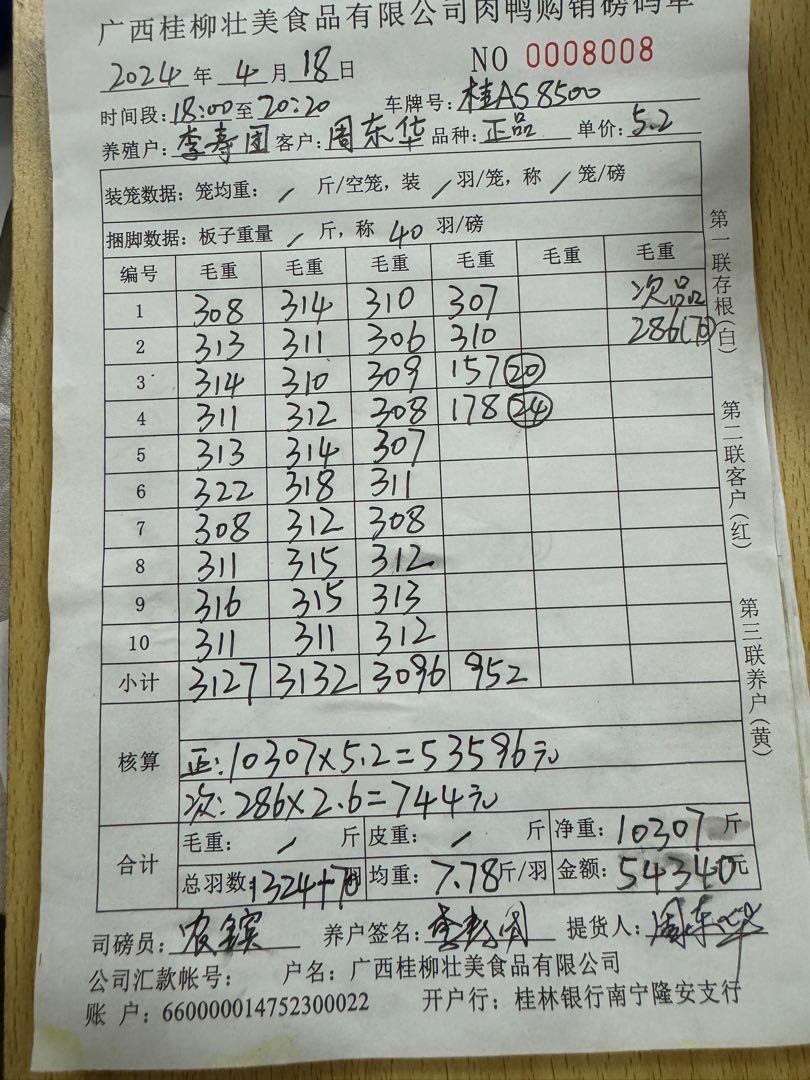 广西桂柳壮美食品有限公司肉鸭购销磅码单
2024年 4月18日 NO 0008008
时间段:18:00至20:20 车牌号:桂AS8500
养殖户:李寿团 客户:周东华 品种:正品 单价:5.2
装笼数据:笼均重: / 斤/空笼,装 / 羽/笼,称 / 笼/磅
捆脚数据:板子重量 / 斤,称 40 羽/磅
编号 毛重 毛重 毛重 毛重 毛重 毛重
1 308 314 310 307 次品
2 313 311 306 310 286(70)
3 314 310 309 157 20
4 311 312 308 178 24
5 313 314 307
6 322 318 311
7 308 312 308
8 311 315 312
9 316 315 313
10 311 311 312
小计 3127 3132 3096 952
核算
正:10307×5.2=53596元
次:286×2.6=744元
合计
毛重: / 斤 皮重: / 斤 净重:10307斤
总羽数:1324+70羽 均重:7.78斤/羽 金额:54340元
司磅员:农 养户签名:李寿团 提货人:周东华
公司汇款帐号: 户名:广西桂柳壮美食品有限公司
账 户:660000014752300022 开户行:桂林银行南宁隆安支行
第一联存根(白)
第二联客户(红)
第三联养户(黄)